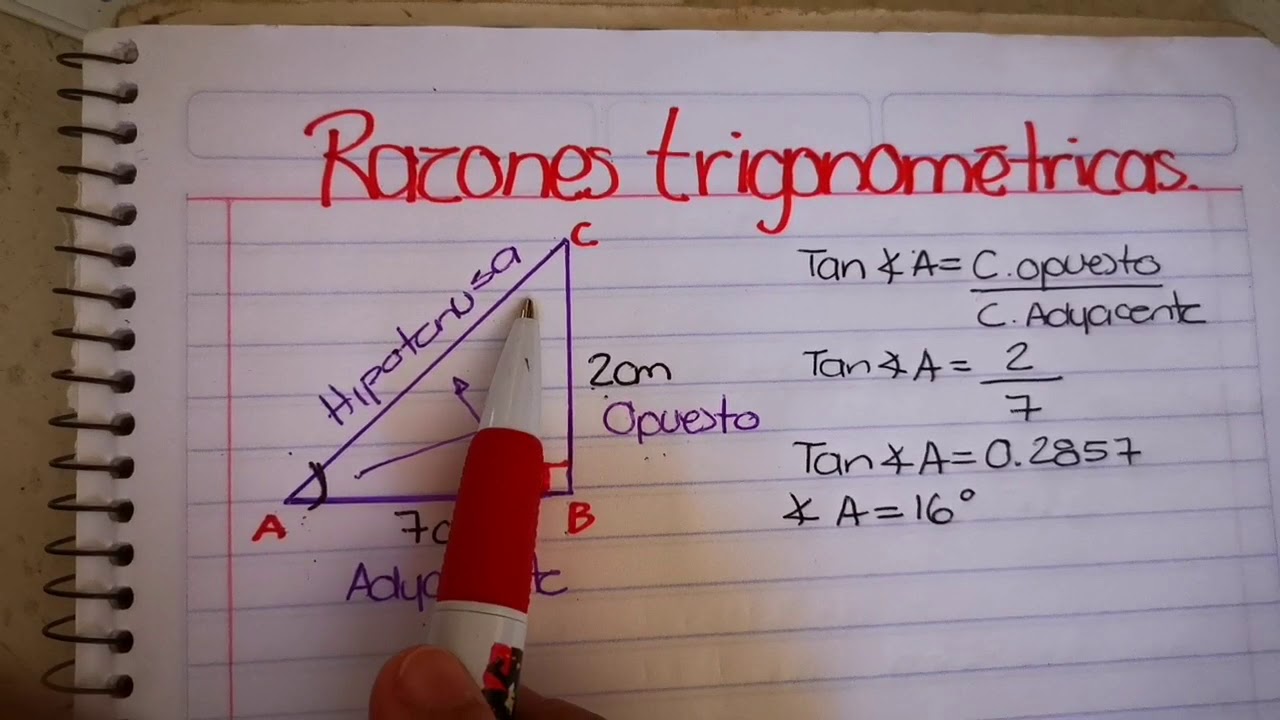 Razones trigonométricas.
C
Hipotenusa
2cm
Opuesto
A
B
Tan ∡ A = C. opuesto
C. Adyacente
Tan ∡ A = 2
7
Tan ∡ A = 0.2857
∡ A = 16°